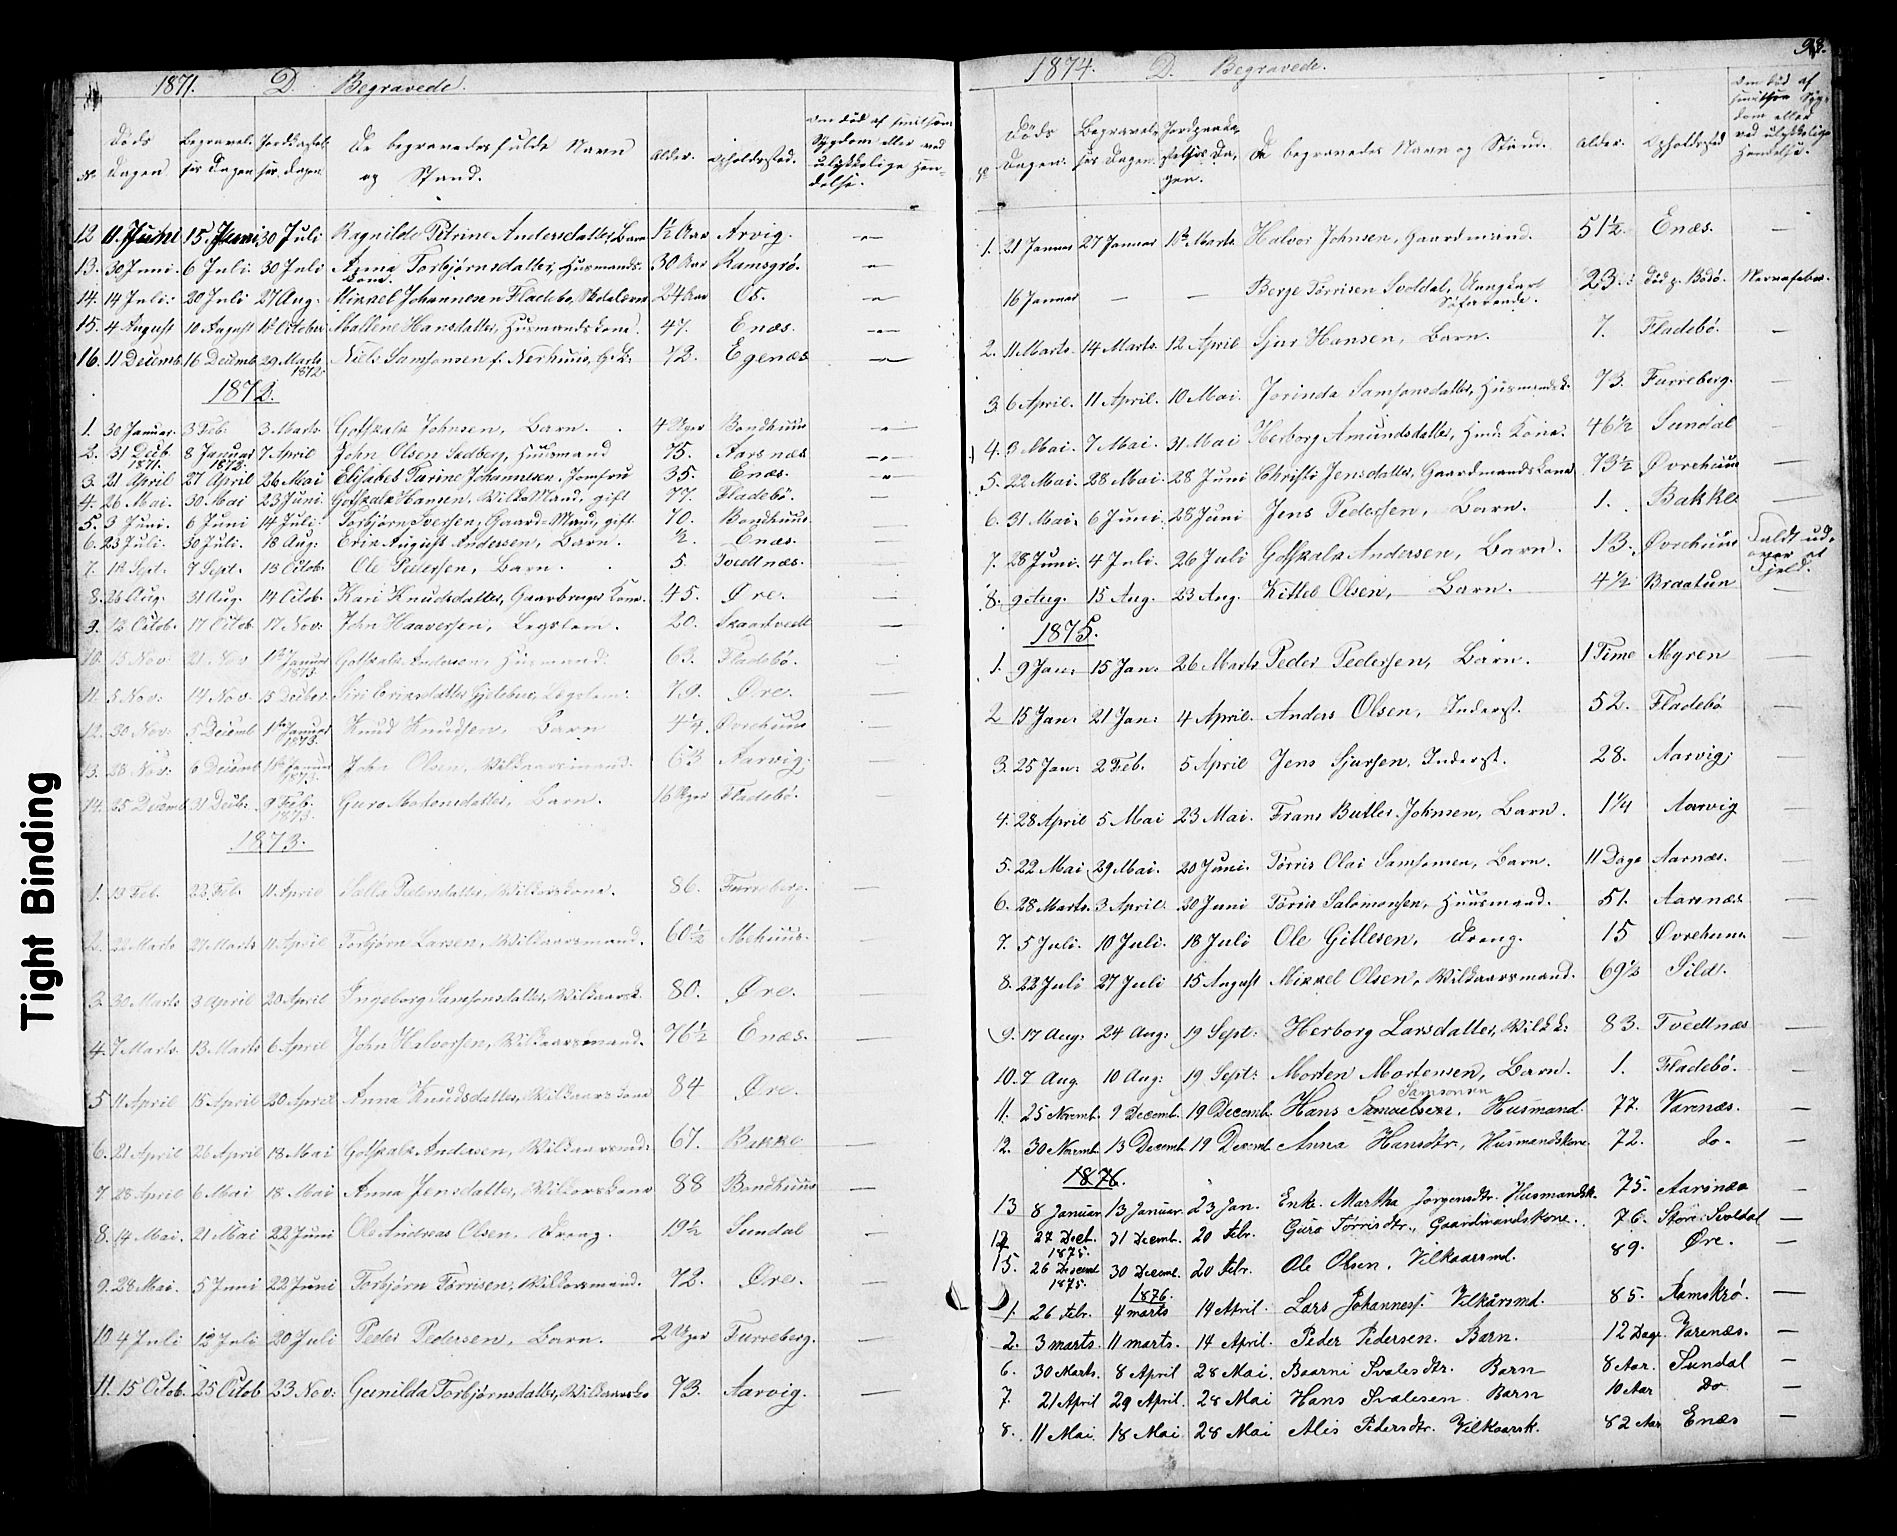 1871. D. Begravede.
No Döds Dagen Begravel- ses Dagen Jordkastel- ses Dagen De begravedes fulde Navn og Stand. Alder. Opholdssted. Om död af smitsom Sygdom eller ved ulykkelige Hæn- delse.
12 11. Juni 15. Juni 30 Juli Ragnilde Petrine Andersdatter, Barn 1½ Aar Arvig. —
13. 30 Juni. 6 Juli. 30 Juli Anna Torbjørnsdatter, Husmands- Kone. 30 Aar Ramsgrø. —
14. 14 Juli: 20 Juli 27 Aug: Mikkel Johannesen Fladebø, 24 Aar Os. —
15. 4 August 10 August 1st October Mallene Hansdatter, Husmandskone. 47. Enæs. —
16. 11 Decemb. 16 Decemb. 29 Marts 1872. Niels Samsonsen f. Nerhuus, G. B. 72. Egenæs —
1872.
1. 30 Januar. 3 Feb. 3. Marts Gotskalk Johnsen, Barn. 4 Uger Bondhuus —
2. 31 Decb 1871. 8 Januar 1872. 7 April John Olsen Sedberg, Huusmand 75. Aarsnæs —
3. 21 April 27 April 26 Mai Elisabet Turine Johannesen, Jomfru 35. Enæs. —
4. 26 Mai. 30 Mai 23 Juni. Gotskalk Hansen, Wilk. Mand, gift 77. Fladebø. —
5. 3 Juni. 6 Juni 14 Juli. Torbjørn Iversen, Gaard-Mand, gift 70. Bondhuus —
6. 23 Juli. 30 Juli. 18 Aug: Erik August Andersen, Barn. ½ Enæs. —
7. 1st Sept. 7 Sept. 13 Octob. Ole Pedersen, Barn. 5. Tvedtnæs. —
8. 26 Aug. 31 Aug. 14 Octob. Kari Knudsdatter, Gaardbruger Kone. 45. Øre. —
9. 12 Octob. 17 Octob 17 Nov. John Haaversen, Legslem. 20. Skaartvedt —
10. 15 Nov: 21. Nov 1st Januar 1873 Gotskalk Andersen, Husmand. 63. Fladebø. —
11. 5 Nov: 14 Nov 15 Decbr Siri Eriksdatter Gjelebø, Legslem. 79. Øre. —
12. 30 Nov: 5 Decemb 1ste Januar 1873. Knud Knudsen, Barn 4¼. Øvrehuus —
13. 28 Nov: 6 Decemb 1ste Januar 1873. John Olsen, Wilkaarsmand. 63 Aarvig. —
14. 25 Decemb 31 Decb: 9 Feb. 1873. Guro Mortensdatter, Barn. 16 Uger Fladebø. —
1873.
1. 13 Feb. 23 Feb: 11 April Salla Pedersdatter, Wilkorskone. 86. Furreberg. —
2. 22 Marts 27 Marts 11 April Torbjørn Larsen, Wilkaarsmand. 60½ Mehuus. —
3. 30 Marts 3 April 20 April Ingeborg Samsonsdatter, Wilkaarsk. 80. Øre. —
4. 7 Marts. 13 Marts 6 April John Halvorsen, Wilkaarsmand. 76½ Enæs. —
5 11 April 15 April 20 April Anna Knudsdatter, Wilkaarskone 84 Øre. —
6. 21 April 26 April 18 Mai Gotskalk Andersen, Wilkaarsmd: 67. Bakke —
7 28 April 6 Mai 18 Mai Anna Jensdatter, Wilkorskone 88 Bondhuus —
8. 14 Mai. 21 Mai 22 Juni Ole Andreas Olsen, Dreng. 19½ Sundal —
9. 28 Mai. 5 Juni 22 Juni Torbjørn Tørrisen, Wilkorsmand. 72. Øre. —
10 4 Juli 12 Juli 20 Juli Peder Pedersen, Barn. 2 Uger Furreberg. —
11. 15 Octob. 25 Octob 23 Nov. Gunilda Torbjørnsdatter, Wilkaarsko 73. Aarvig. —
93.
1874. D. Begravede.
No Döds Dagen. Begravel- ses Dagen. Jordpaaka- stelses Da- gen. De begravedes Navn og Stand. Alder. Opholdssted Om död af smitsom Syg- dom eller ved ulykkelige Hændelse.
1. 21 Januar 27 Januar 1st Marts Halvor Johnsen, Gaardmand. 51½. Enæs. —
16 Januar — — Berge Tørrisen Svoldal, Ungkarl Söfarende. 23. död p. Bodö. Nervefeber.
2. 11 Marts 14 Marts. 12 April Sjur Hansen, Barn. 7. Fladebö. —
3. 6 April. 11 April. 10 Mai. Jorinda Samsonsdatter, Husmandsk. 73. Furreberg. —
4. 3 Mai. 7 Mai. 31 Mai Herborg Amundsdatter, Hus. Kone. 46½ Sundal —
5. 22 Mai. 28 Mai. 28 Juni Christi Jensdatter, Gaardmands Kone 73½ Øvrehuus —
6. 31 Mai. 6 Juni. 28 Juni Jens Pedersen, Barn. 1. Bakke —
7. 28 Juni. 4 Juli. 26 Juli Gotskalk Andersen, Barn. 13. Øvrehuus Faldt ud- over et Fjeld.
8. 9 Aug. 15 Aug. 23 Aug. Kittel Olsen, Barn. 4½ Braatun —
1875.
1. 9 Jan: 15 Jan: 26 Marts Peder Pedersen, Barn. 1 Time Myren —
2 15 Jan: 21 Jan: 4 April. Anders Olsen, Inderst. 52. Fladebö —
3. 25 Jan: 2 Feb. 5 April Jens Sjursen, Inderst. 28. Aarvig; —
4. 28 April 5 Mai 23 Mai. Frans Butler Johnsen, Barn. 1¼ Aarvig —
5. 22 Mai 29 Mai. 20 Juni. Tørris Olai Samsonsen, Barn. 11 Dage Aarnæs. —
6. 28 Marts. 3 April. 20 Juni Tørris Salomonsen, Huusmand. 51. Aarsnæs —
7. 5 Juli. 10 Juli. 18 Juli Ole Gillesen, Dreng. 15 Øvrehuus. —
8. 22 Juli 27 Juli 15 August Mikkel Olsen, Wilkaarsmand. 69½ Sildt. —
9. 17 Aug. 24 Aug: 19 Sept: Herborg Larsdatter, Wilk. K: 83. Tvedtnæs —
10. 7 Aug. 10 Aug: 19 Sept: Morten Mortensen, Barn. 1. Fladebø. —
Samsonsen
11. 25 Novemb. 9 Decemb. 19 Decemb. Hans Samuelsen. Husmand. 77. Varenæs. —
12. 30 Novemb. 13 Decemb. 19 Decemb. Anna Hansdtr., Husmandskone 72. do. —
1876.
13 8 Januar 13 Januar. 23 Jan. Enke Martha Jorgensdtr. Husmandsk. 75. Aarsnæs —
14 27 Decb. 1875. 31 Decemb. 20 Febr. Guro Tørrisdtr., Gaardmandskone. 76. Store Svoldal —
15. 26 Decemb 1875. 30 Decemb. 20 Febr. Ole Olsen, Vilkaarsmd. 89. Øre. —
1876.
1. 26 Febr. 4 marts 14 April. Lars Johanness. Vilkårsmd. 85. Aamskrø. —
2. 3 marts. 11 marts. 14 April. Peder Pedersen. Barn. 12 Dage. Varenæs. —
6. 30 Marts. 8 April 28 Mai. Baarni Svalesdtr. Barn 8 Aar. Sundal —
7. 21 April 29 April. 28 Mai Hans Svalesen Barn 10 Aar Do —
8. 11 Mai. 18 Mai 28 Mai Alis Pedersdtr. Vilkaarsk. 82 Aar Enæs —
Tight Binding